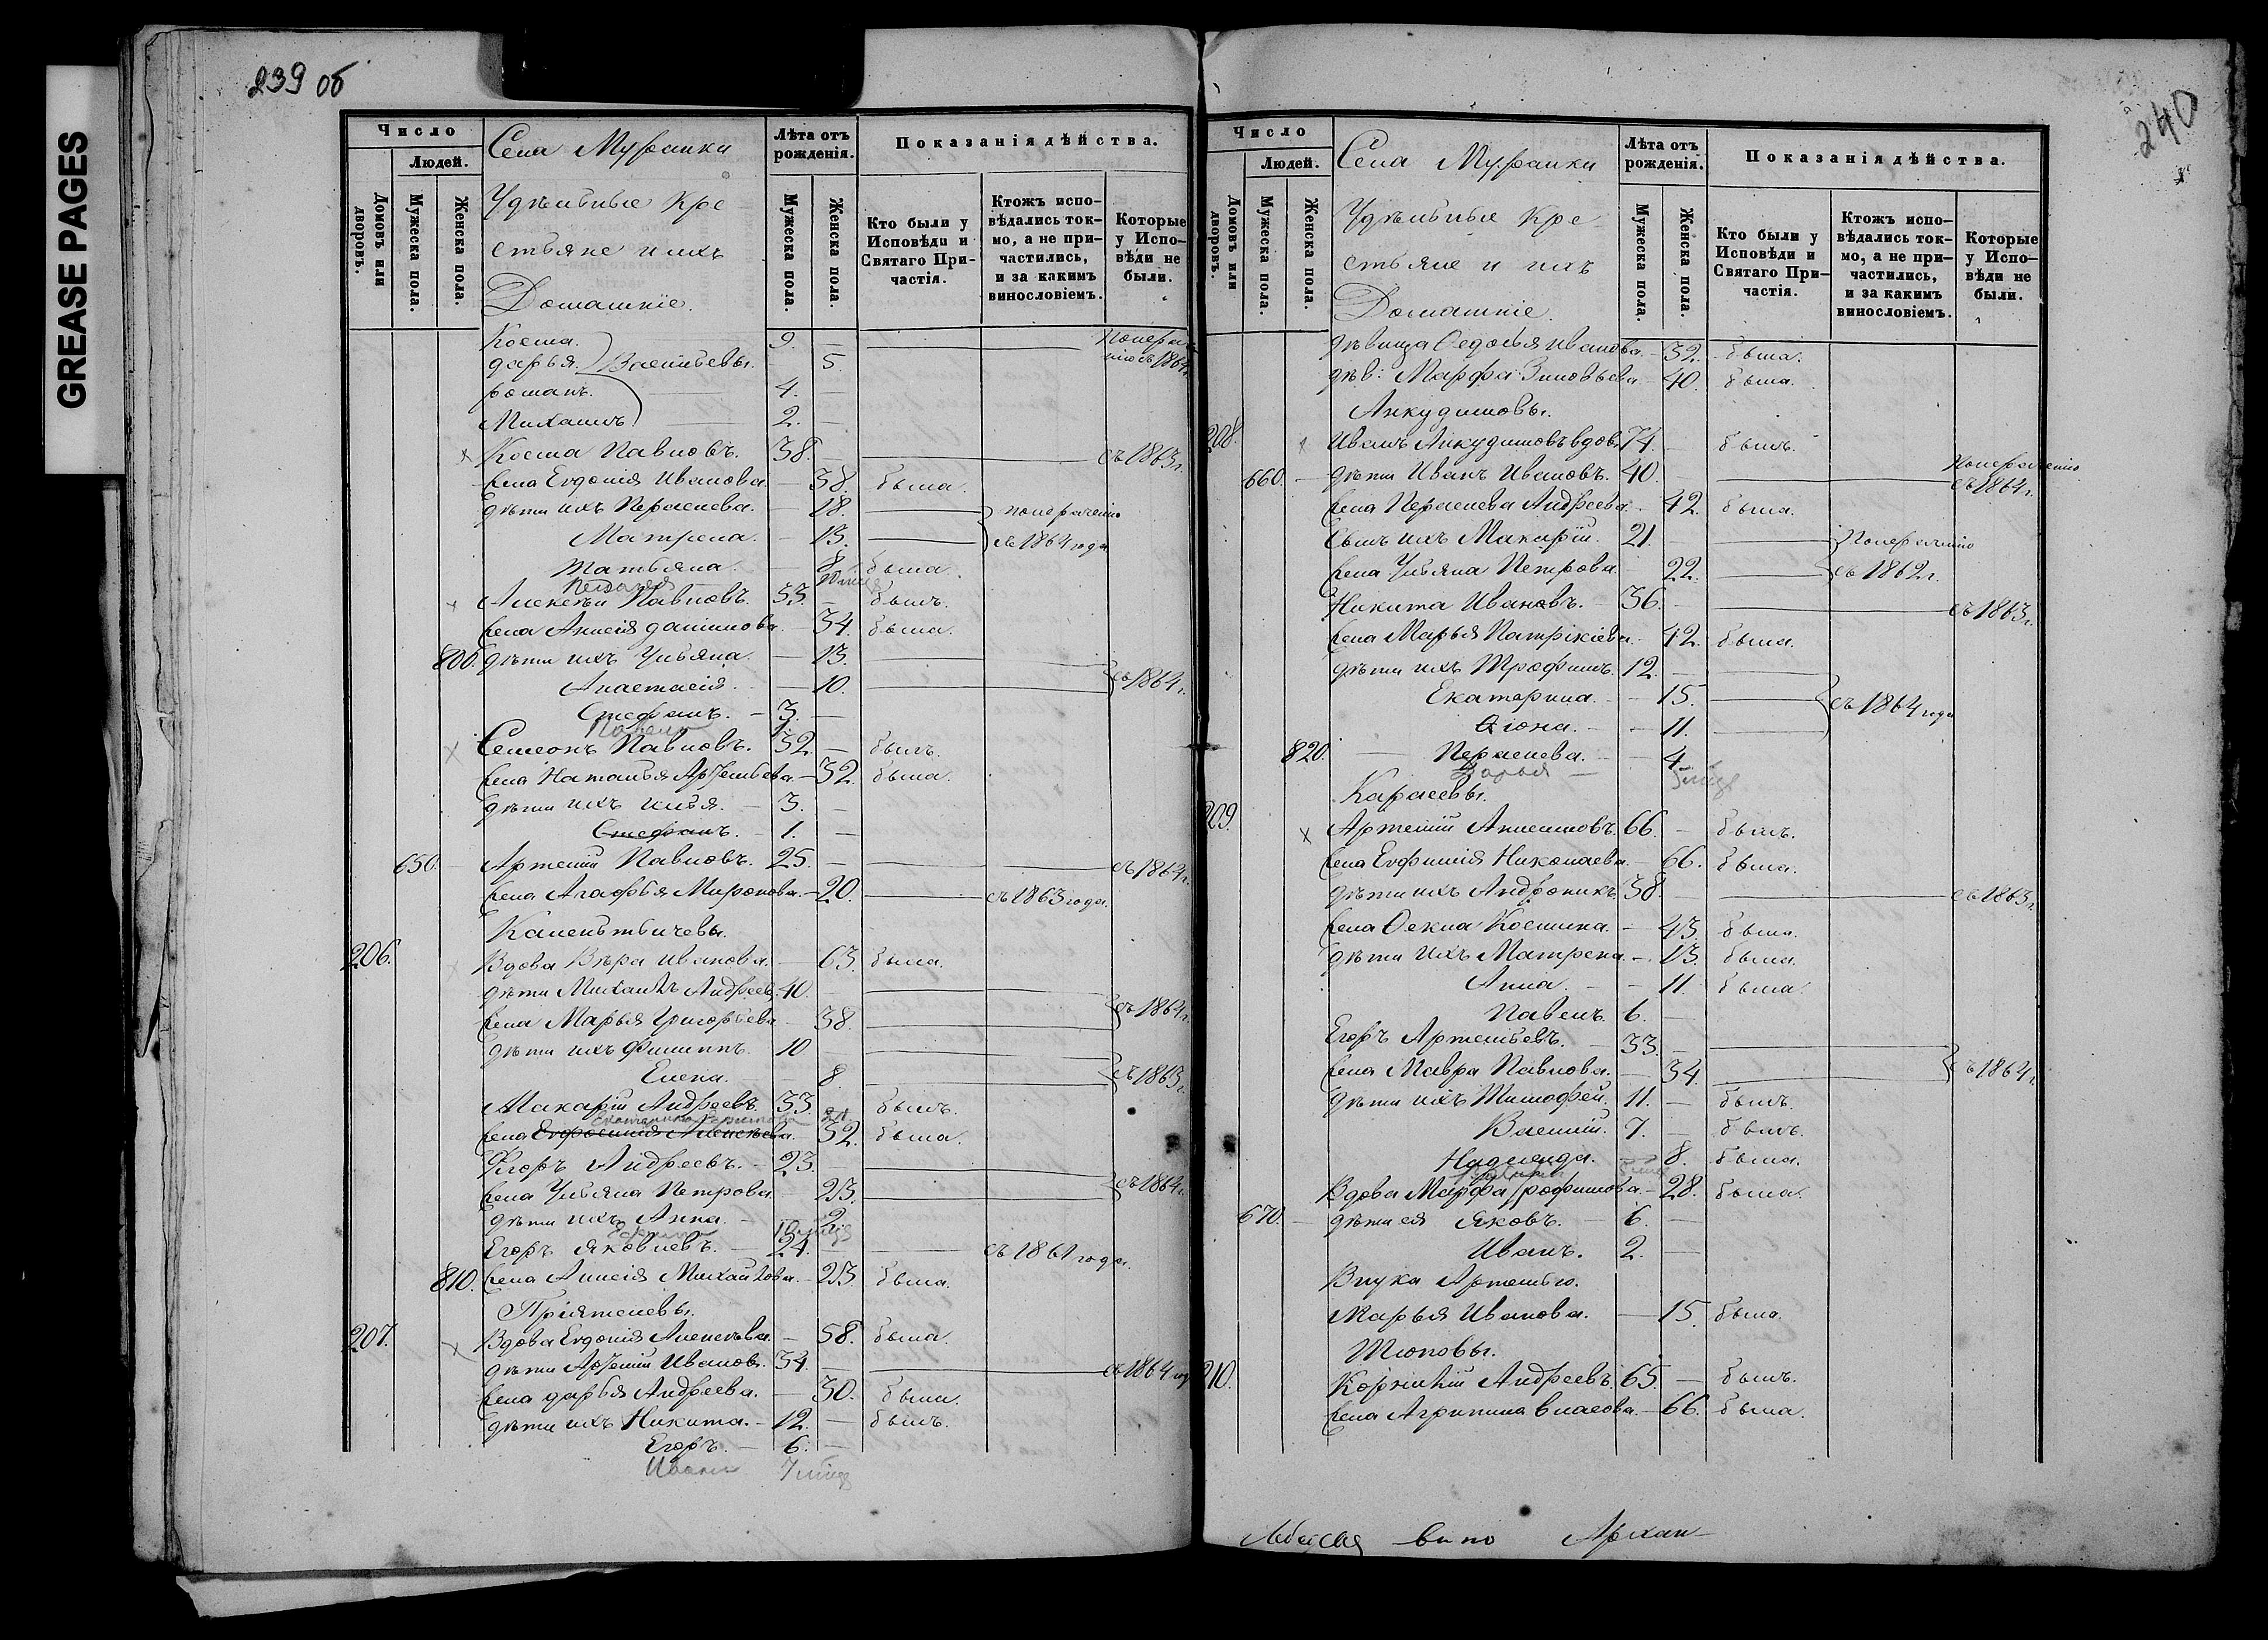 GREASE PAGES
239 об
Число
Людей.
Домовъ или дворовъ.
Мужеска пола.
Женска пола.
Села Муранки
Удѣльные Кре
стьяне и ихъ
Домашніе.
Лѣта отъ рожденія.
Мужеска пола.
Женска пола.
Показанія дѣйства.
Кто были у Исповѣди и Святаго Причастія.
Ктожъ исповѣдались токмо, а не причастились, и за какимъ винословіемъ.
Которые у Исповѣди не были.
Косма. 9.
Дарья. Васильевы. 5. съ 1864
Романъ. 4. —
Михаилъ 2. —
х Косма Павловъ. 38. съ 1863 г.
жена Евдокія Иванова. — 38. была.
дѣти ихъ Параскева. — 18. по нераченію
Матрена. — 13. съ 1864 года
Татьяна. — 8. была.
х Алексѣй Павловъ. 33. — былъ.
жена Анисія Данилова — 34. была.
800. дѣти ихъ Ульяна. — 13.
Анастасія. — 10. съ 1864 г.
Стефанъ. — 3. —
х Семеонъ Павловъ. 32. — былъ.
жена Наталья Артемьева. — 32. была.
дѣти ихъ Илья. — 3. —
Стефанъ. — 1. —
650. Артемій Павловъ. 25. — съ 1864 г.
жена Агафья Миронова. — 20. съ 1863 года.
206. х Вдова Вѣра Иванова. — 63. была.
дѣти Михаилъ Андреев. 40.
жена Марья Григорьева — 38. съ 1864 г.
дѣти ихъ Филиппъ. 10
Елена. — 8. съ 1863 г
Макарій Андреевъ. 33. былъ.
жена Евфросинія Алексѣева. 32. была.
Егоръ Андреевъ. — 23. —
жена Ульяна Петрова — 23. съ 1864 г.
дѣти ихъ Анна. — 2.
Егоръ Яковлевъ. — 24. — съ 1861 года.
810. жена Анисія Михайлова. — 23 была.
Пріятелевы.
207. х Вдова Евдокія Алексѣева. — 58. была.
дѣти Артемій Иванов. 34. — съ 1864 г
жена Дарья Андреева. — 30. была.
дѣти ихъ Никита. — 12. — былъ.
Егоръ. — 6. —
Иванъ 7 мѣц
240
Число
Людей.
Домовъ или дворовъ.
Мужеска пола.
Женска пола.
Села Муранки
Удѣльные Кре
стьяне и ихъ
Домашніе.
Лѣта отъ рожденія.
Мужеска пола.
Женска пола.
Показанія дѣйства.
Кто были у Исповѣди и Святаго Причастія.
Ктожъ исповѣдались токмо, а не причастились, и за какимъ винословіемъ.
Которые у Исповѣди не были.
дѣвица Федосья Иванова — 32. была.
дѣв: Марфа Зиновьева — 40. была.
Анкудиновы.
208. х Иванъ Анкудиновъ вдов. 74. — былъ.
660. — дѣти Иванъ Ивановъ. 40. по нераченію съ 1864 г.
жена Параскева Андреева — 42. была.
Сынъ ихъ Макарій. 21. — по нераченію
жена Ульяна Петрова. 22. съ 1862 г.
Никита Ивановъ. — 36. — съ 1863 г.
жена Марья Патрикіева — 42. была.
дѣти ихъ Трофимъ. 12. —
Екатерина. — 15. съ 1864 года
Фіона. — 11.
820. Параскева. — 4.
Дарья — 5 мѣц
Карасевы.
209. х Артемій Анисимовъ. 66. — былъ.
жена Евфимія Николаева. — 66. была.
дѣти ихъ Андроникъ. 38. — съ 1863 г
жена Фекла Космина. — 43. была.
дѣти ихъ Матрена. — 13. была.
Анна. — 11. была.
Павелъ. 6. —
Егоръ Артемьевъ. — 33. —
жена Мавра Павлова. — 34. съ 1864 г
дѣти ихъ Тимофей. 11. — былъ.
Василій. 7. — былъ.
Надежда. — 8. была.
Вдова Марфа Трофимова. — 28. была.
670. — дѣти ея Яковъ. — 6. —
Иванъ. 2. —
Внука Артемью.
Марья Иванова. — 15. была.
Тюповы.
210. Корнилій Андреевъ. 65. — былъ.
жена Агрипина Власова. — 66. была.